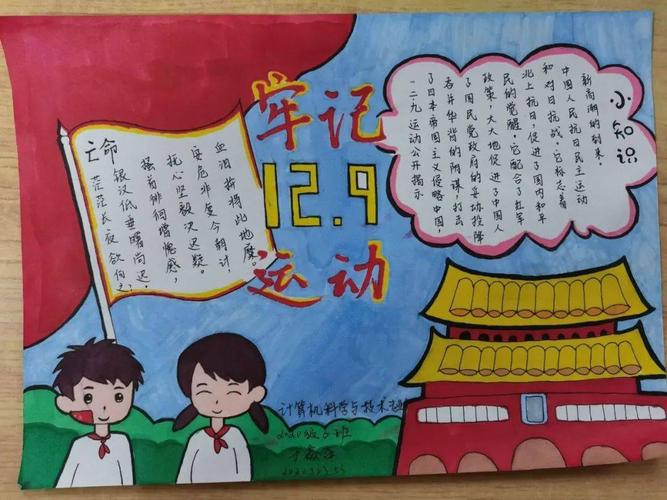 牢记
12.9
运动
亡命
茫茫长夜欲何之,
银汉低垂曙尚迟,
搔首徘徊增愧感,
抚心坚毅决迟疑。
安危非复今朝计,
血泪拚将此地糜。
小知识
一二九运动公开揭示
了日本帝国主义侵略中国,
吞并华北的阴谋,打击
了国民党政府的妥协投降
政策,大大地促进了中国人
民的觉醒。它配合了红军
北上抗日,促进了国内和平
和对日抗战。它标志着
中国人民抗日民主运动
新高潮的到来。
计算机科学与技术专业